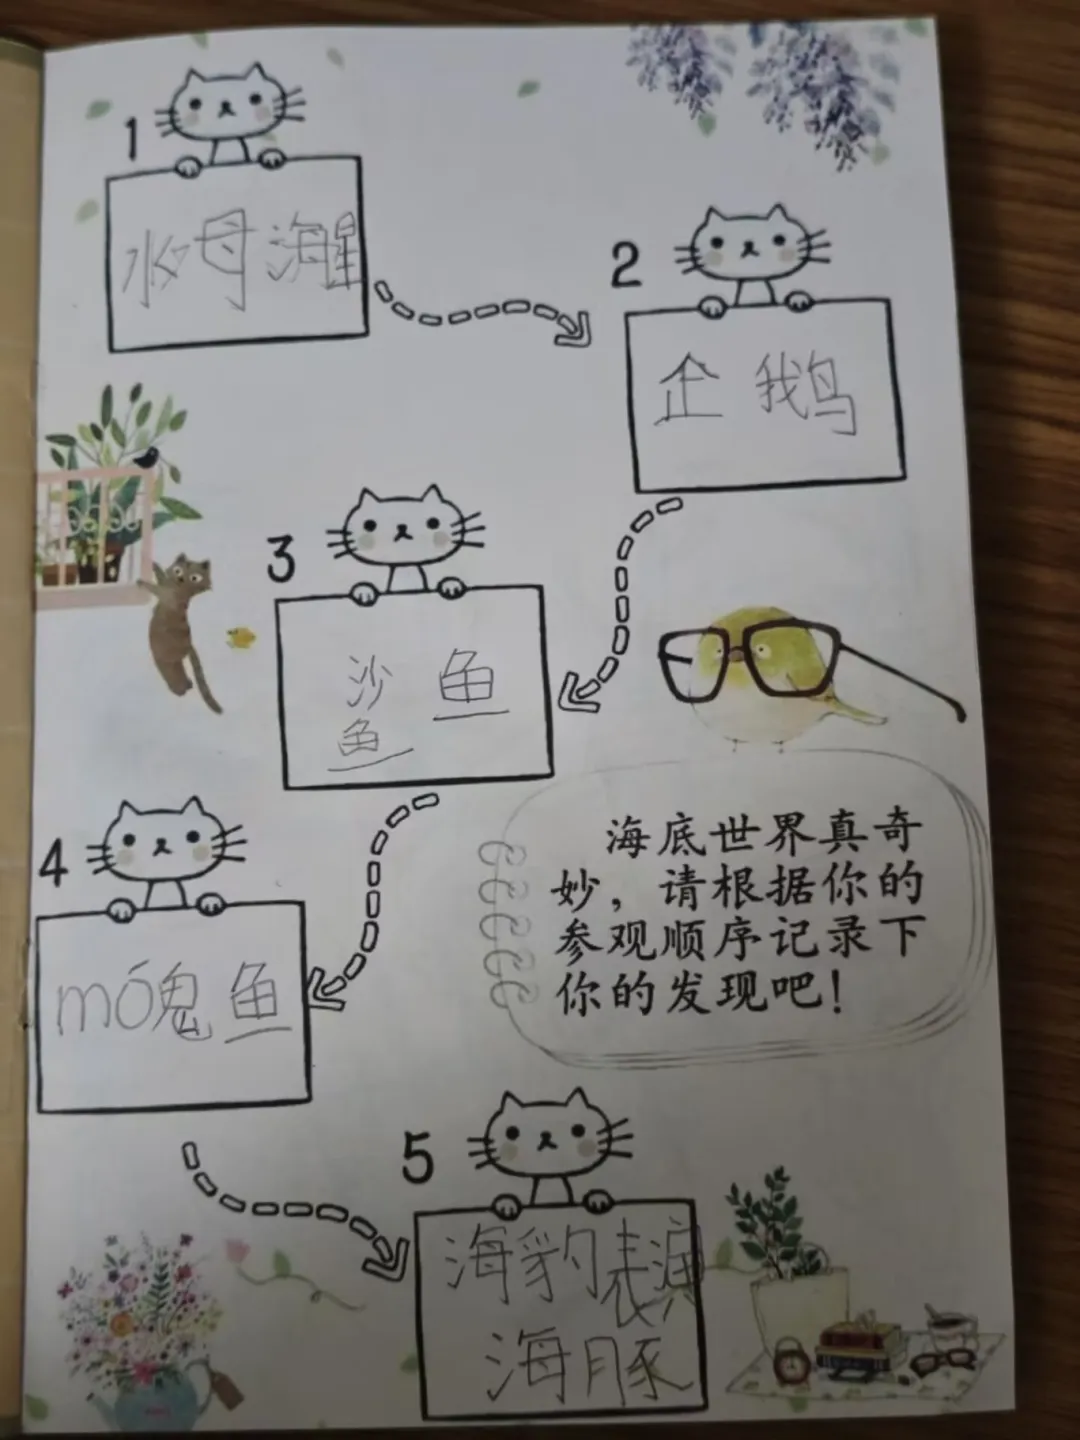 1
水母海星
2
企鹅
3
沙 鱼
鱼
4
mó鬼鱼
海底世界真奇
妙，请根据你的
参观顺序记录下
你的发现吧！
5
海豹表演
海豚